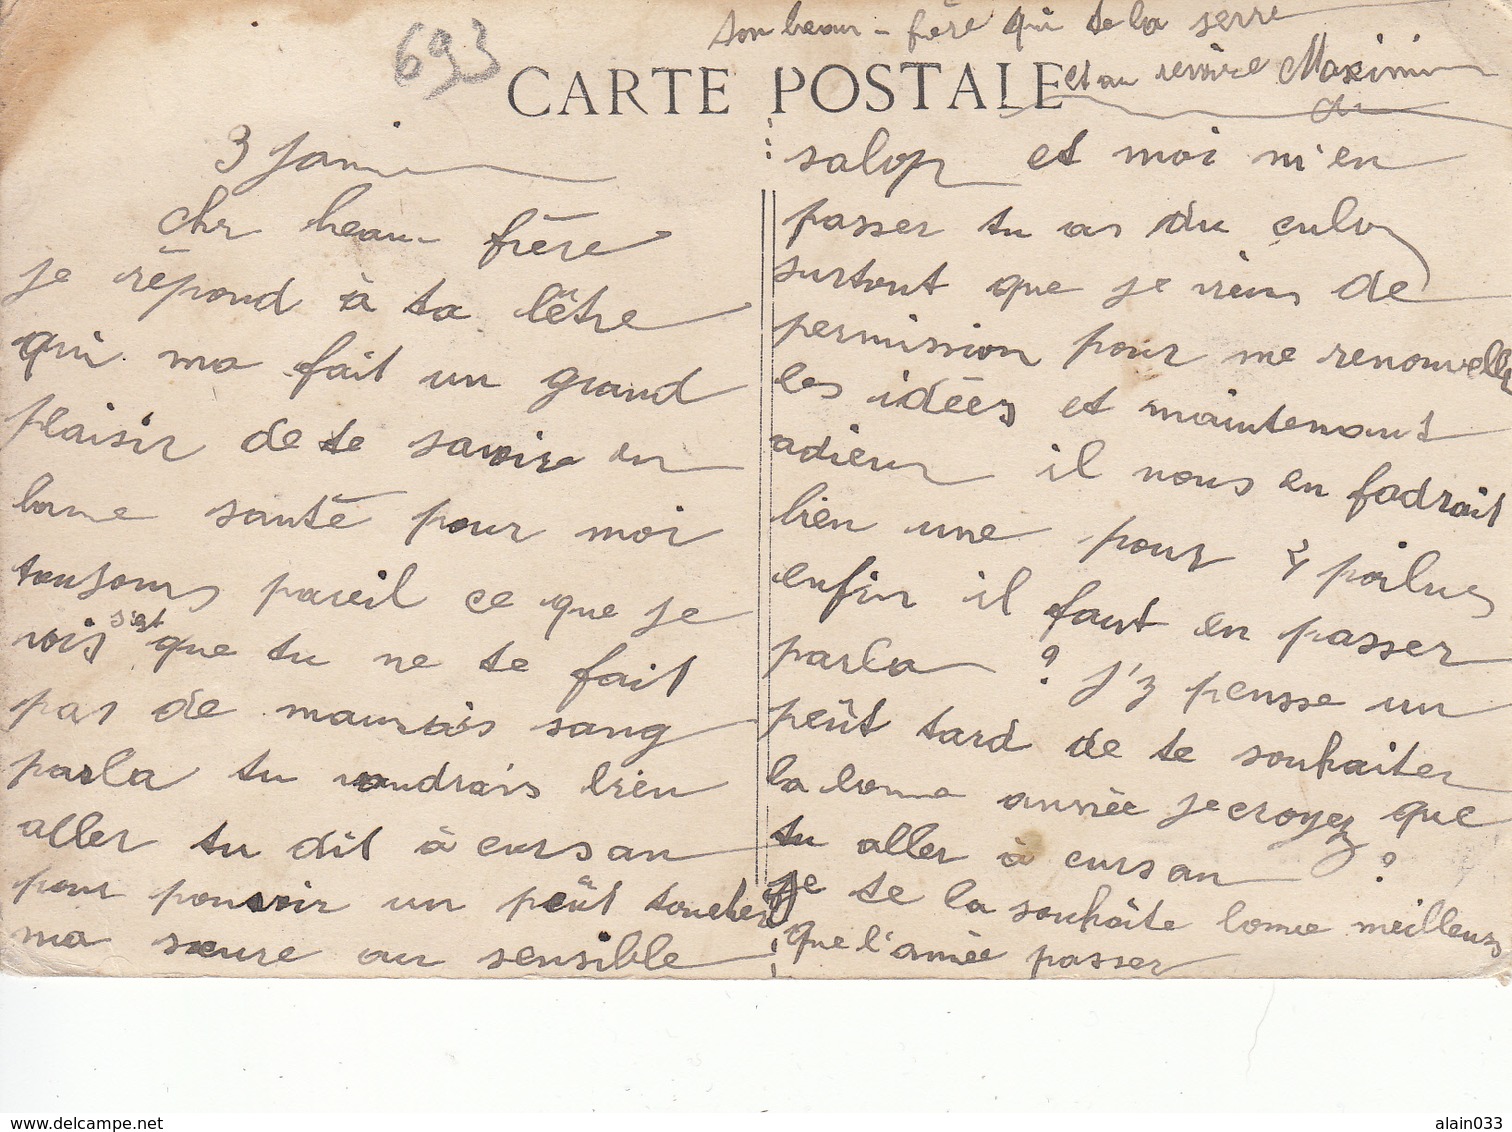 693
CARTE POSTALE
3 Janvier
Cher beau frère
je répond à ta lêtre
qui ma fait un grand
plaisir de te savoire en
bonne santé pour moi
toujours pareil ce que je
vois s'est que tu ne te fait
pas de mauvais sang
parla tu voudrais bien
aller tu dit à cursan
pour pouvoir un peût toucher
ma sœure au sensible
salop et moi m'en
passer tu as du culot
surtout que je viens de
permission pour me renouvelle
les idées et maintenant
adieu il nous en fadrait
bien une pour 4 poilus
enfin il faut en passer
parla ? J'y pensse un
peût tard de te souhaiter
la bonne année je croyez que
tu aller à cursan ?
Je te la souhaite bonne meilleurs
que l'année passer
ton beau-frère qui te la serre
et au revoire Maximin
alain033 sur www.delcampe.net